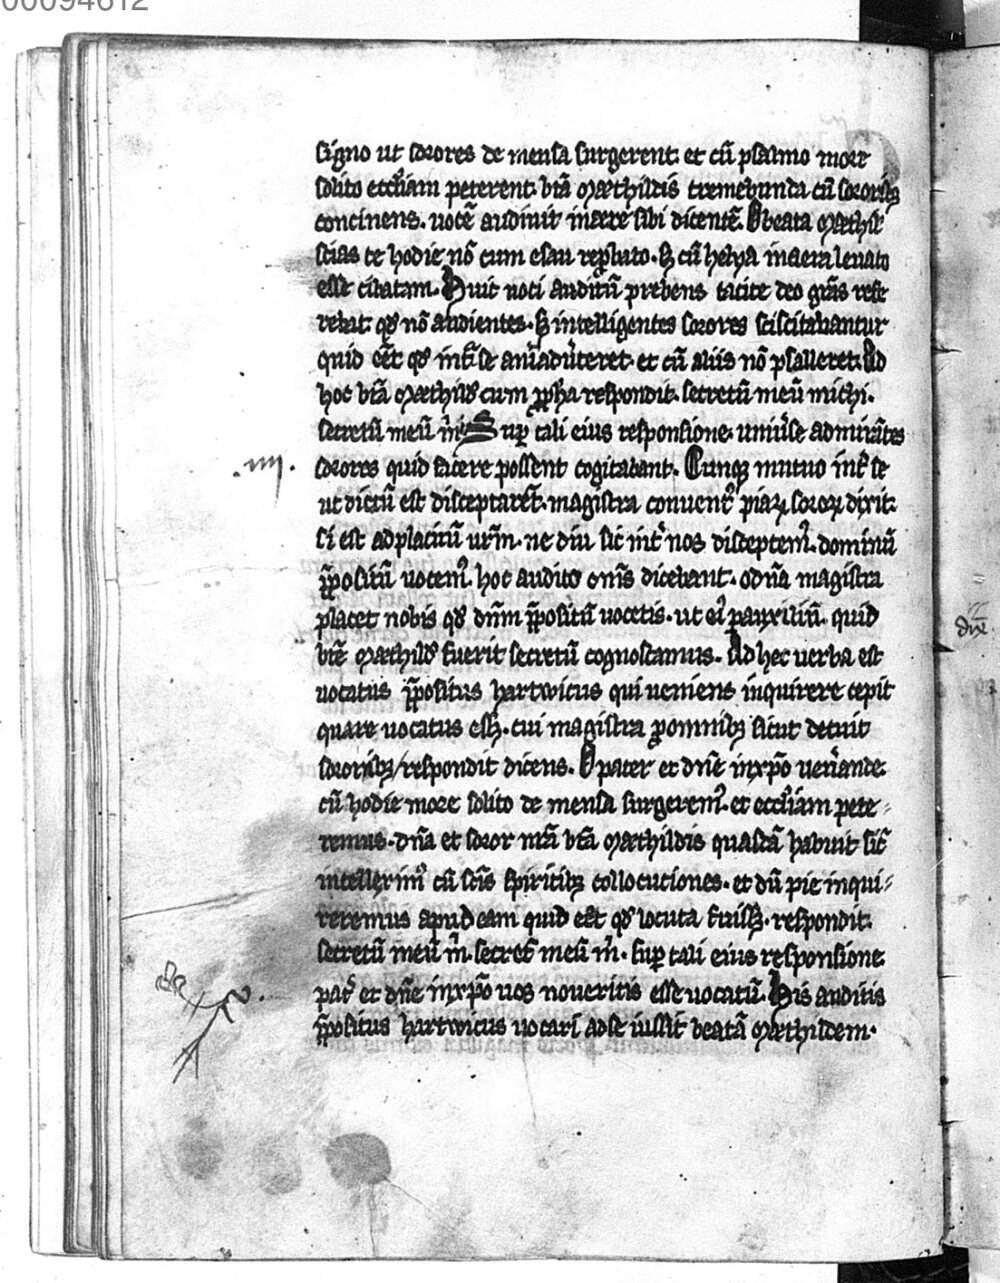 00094612
signo ut sorores de mensa surgerent. et cū psalmo more
solito eccl̄iam peterent. btā Mæthildis tremebunda cū sororibꝫ
concinens. uocē audiuit in aere sibi dicentē. O beata Mæthild̕
scias te hodie nō cum esau reprobato. sꝫ cū helya in aera leuato
esse citatam. Huic uoci auditū prebens tacite deo grās refe
rebat. qd̕ nō audientes. sꝫ intelligentes sorores sciscitabantur
quid eēt qd̕ int̄ se aīaduerteret. et cū aliis nō psalleret. Ad
hoc btā Mæthild̕ cum ꝓpha respondit. secretū meū michi.
secretū meū m̄. Sup̱ tali eius responsione. uniūse admirātes
.iiij.
sorores quid facere possent cogitabant. Cumqꝫ mutuo int̄ se
ut dictū est disceptarēt. magistra conuent̕ piaꝝ soroꝝ dixit.
si est ad placitū ur̄m. ne diu sic int̄ nos disceptem̕. dominū
p̄positū uocem̕. hoc audito om̄s dicebant. o dn̄a magistra
placet nobis qd̕ dn̄m p̄positū uocetis. ut ei̕ p̱ auxiliū. quid
btē Mæthild̕ fuerit secretū cognoscamus. Ad hec uerba est
uocatus p̄positus hartwicus qui ueniens inquirere cepit
quare uocatus esset. cui magistra ꝓ omnibꝫ sicut decuit
sororibꝫ respondit dicens. O pater et dn̄e in xp̄o uen̄ande.
cū hodie more solito de mensa surgerem̕. et eccl̄iam pete-
remus. dn̄a et soror mā btā Mæthildis quasdā habuit sic̄
intelleximꝰ cū sc̄is spiritibꝫ collocuciones. et dū pie inqui-
reremus apud eam quid eēt qd̕ locuta fuisset. respondit.
secretū meū m̄. secret̄ meū m̄. sup̱ tali eius responsione.
pat̄ et dn̄e in xp̄o uos noueritis esse uocatū. His auditis
p̄positus hartwicus uocari ad se iussit beatā Mæthildem.